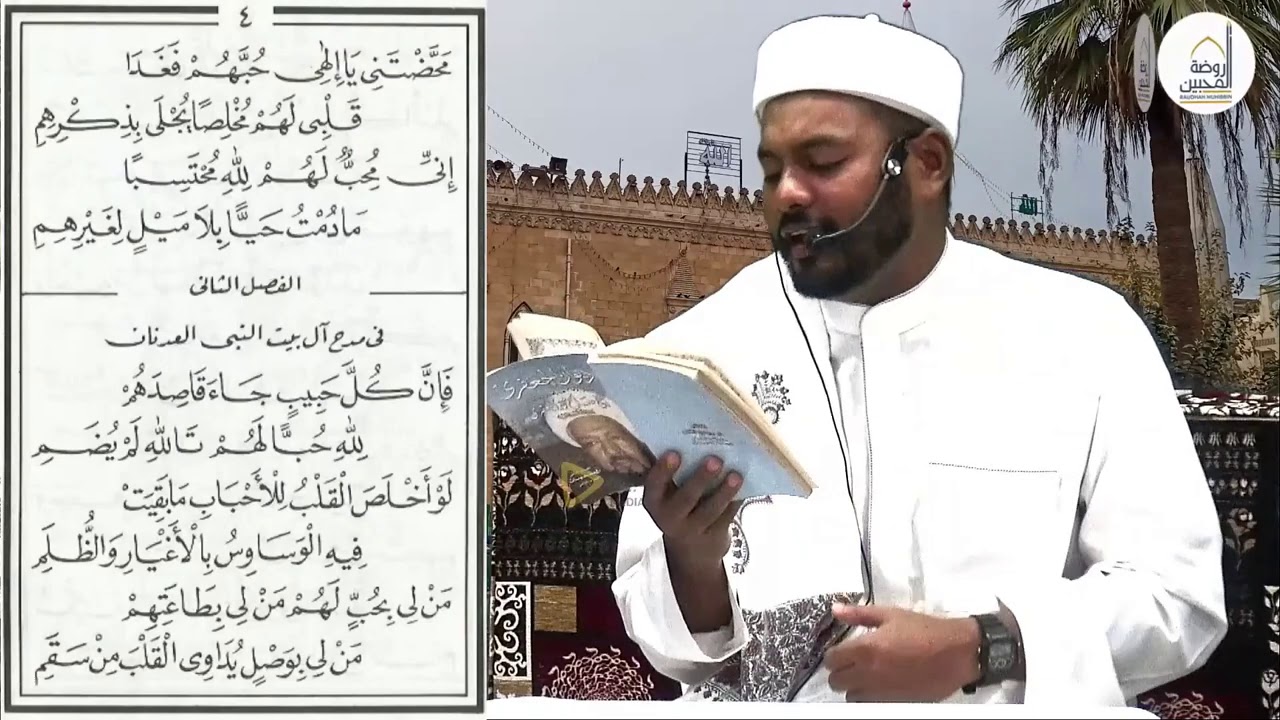 ٤
مَحَّضْتَنِي يَا إِلٰهِى حُبَّهُمْ فَغَدَا
قَلْبِى لَهُمْ مُخْلِصًا يُجْلَى بِذِكْرِهِمِ
إِنِّى مُحِبٌّ لَهُمْ لِلّٰهِ مُحْتَسِبًا
مَادُمْتُ حَيًّا بِلاَ مَيْلٍ لِغَيْرِهِمِ
الفصل الثانى
فى مدح آل بيت النبى العدنان
فَإِنَّ كُلَّ حَبِيبٍ جَاءَ قَاصِدَهُمْ
لِلّٰهِ حُبًّا لَهُمْ تَاللّٰهِ لَمْ يُضَمِ
لَوْ أَخْلَصَ الْقَلْبُ لِلْأَحْبَابِ مَا بَقِيَتْ
فِيهِ الْوَسَاوِسُ بِالْأَغْيَارِ وَالظُّلَمِ
مَنْ لِي بِحُبٍّ لَهُمْ مَنْ لِي بِطَاعَتِهِمْ
مَنْ لِي بِوَصْلٍ يُدَاوِى الْقَلْبَ مِنْ سَقَمِ
روضة
المحبين
RAUDHAH MUHIBBIN